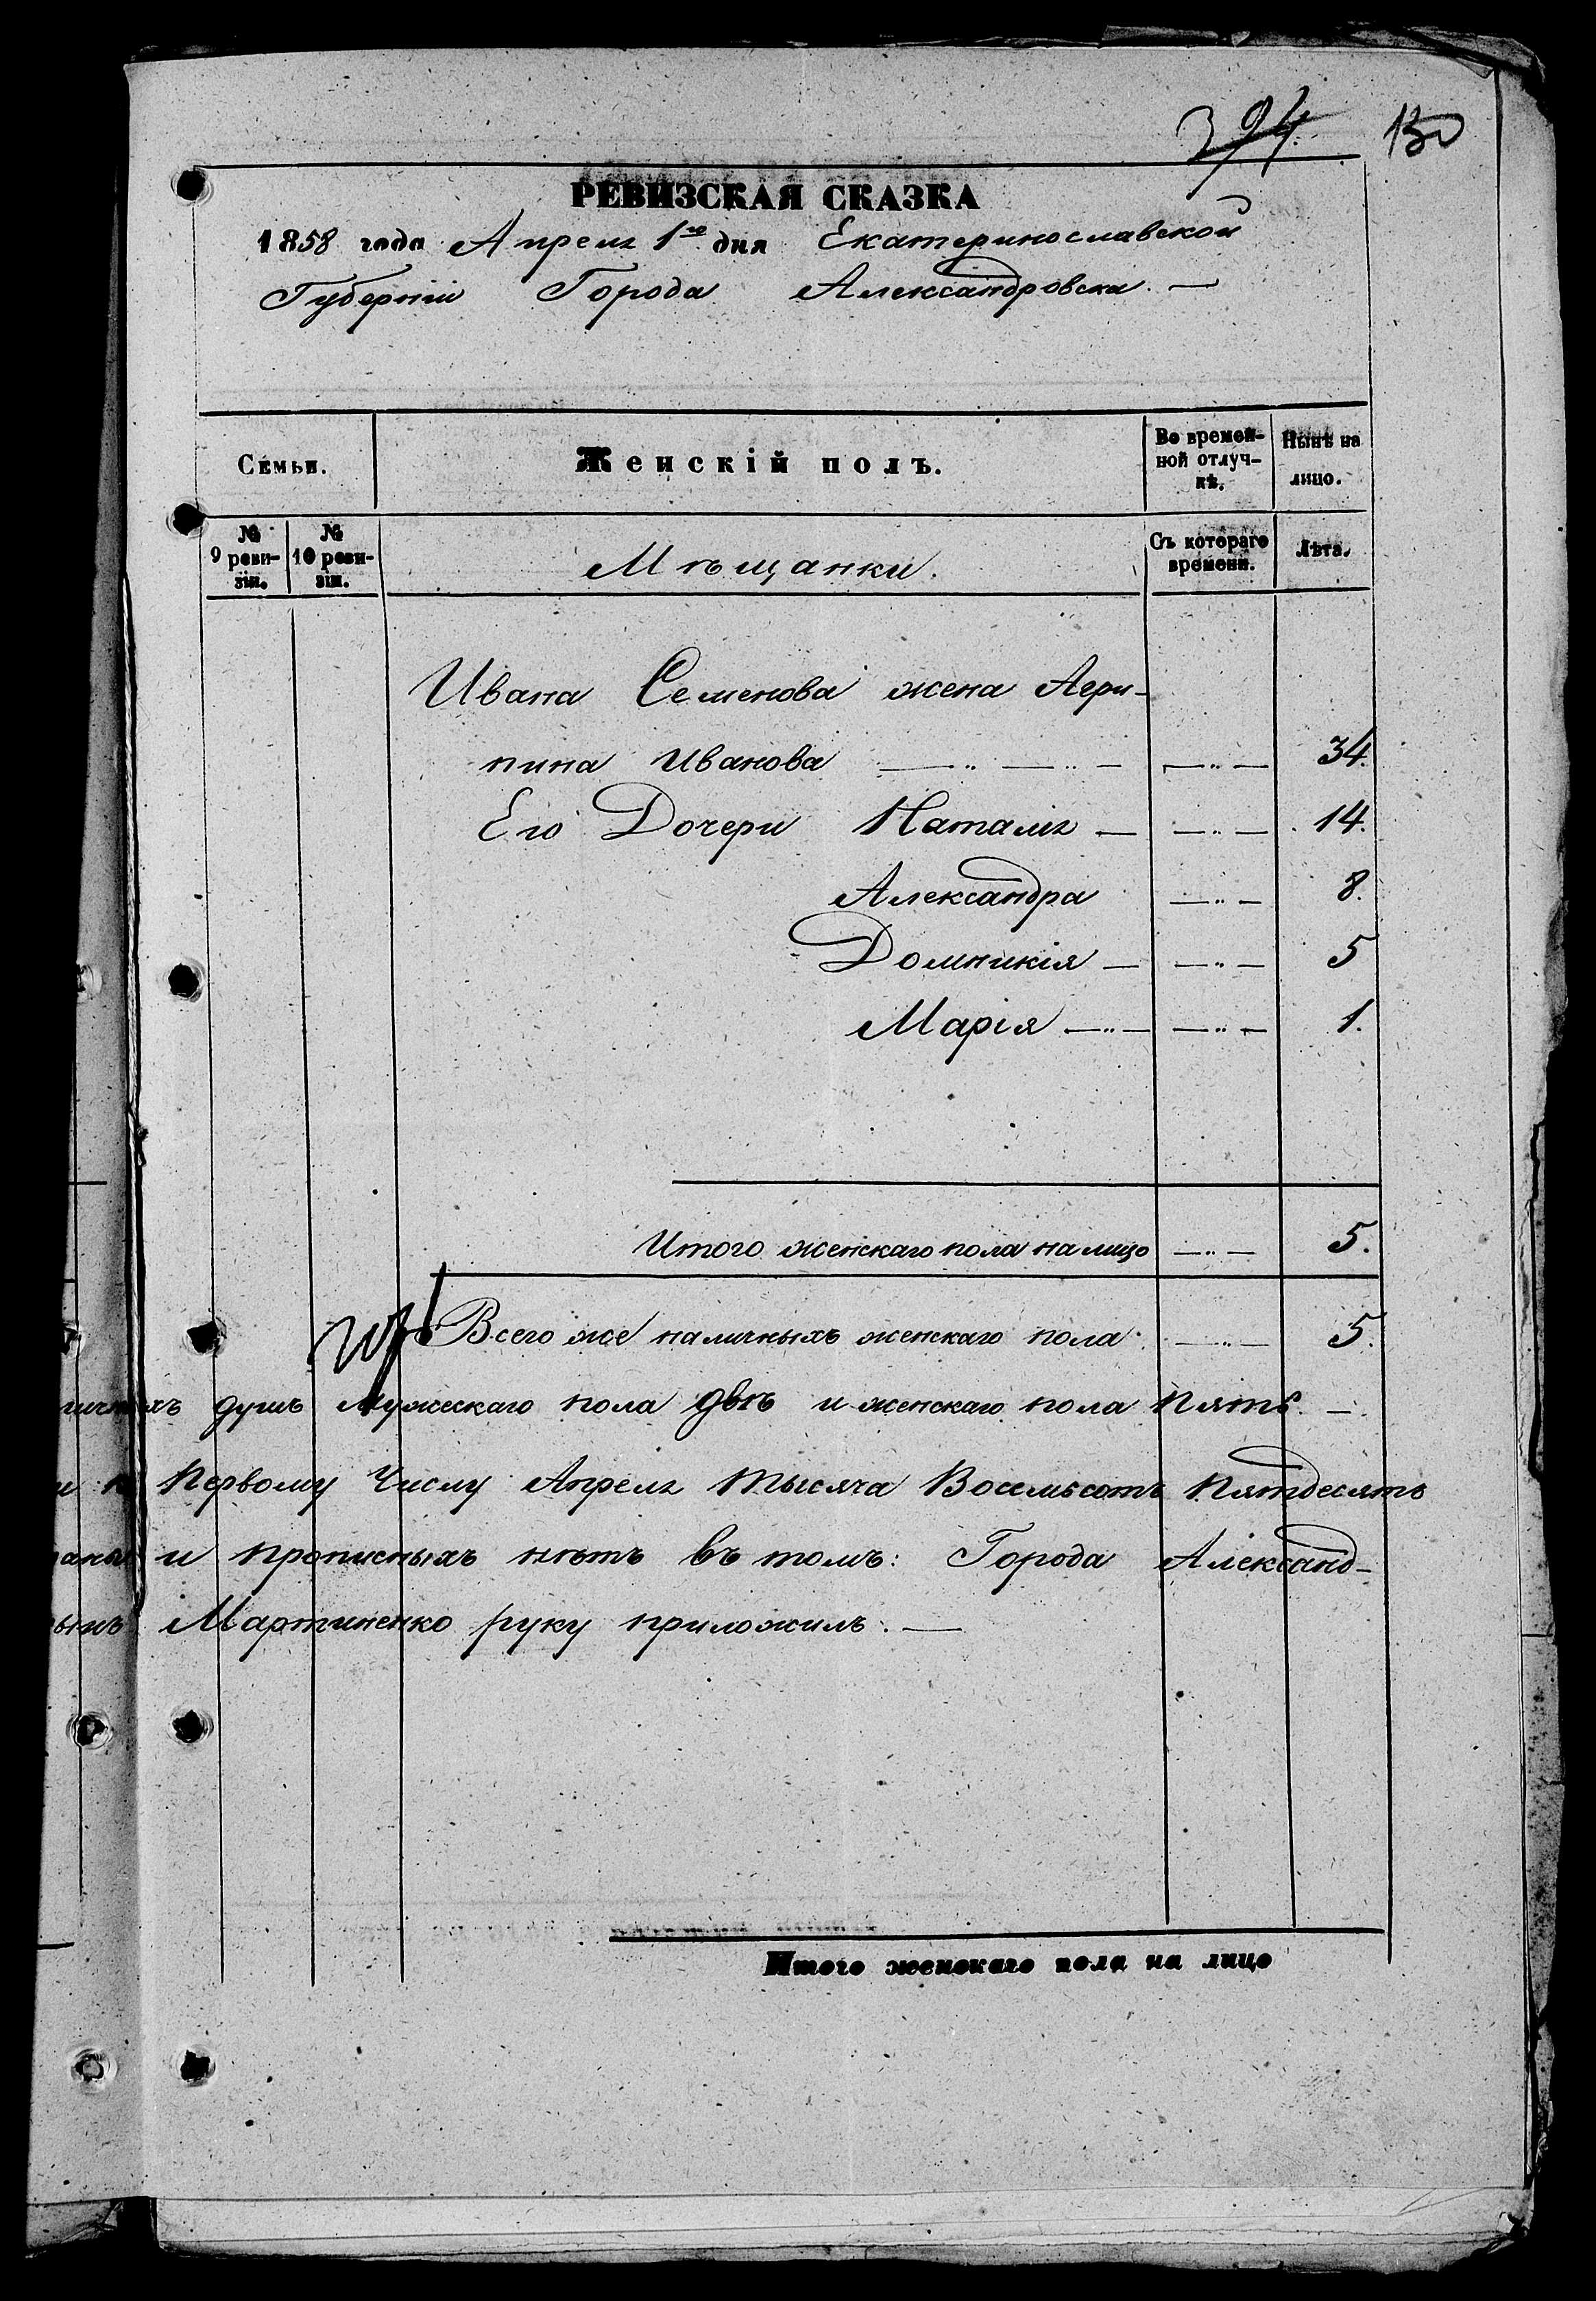 394. 130
РЕВИЗСКАЯ СКАЗКА
1858 года Апреля 1го дня Екатеринославской
Губерніи Города Александровска. —
Семьи.
Женскій полъ.
Во времен-
ной отлуч-
кѣ.
Нынѣ на
лицо.
№
9 реви-
зіи.
№
10 реви-
зіи.
Мѣщанки.
Съ котораго
времени.
Лѣта.
Ивана Семенова жена Агри-
пина Иванова —..— —..— —..— 34.
Его Дочери Наталія — —..— 14.
Александра —..— 8.
Домникія — —..— 5
Марія —..— —..— 1.
Итого женскаго пола налицо —..— 5.
Всего же наличныхъ женскаго пола. —..— 5.
душъ мужескаго пола двѣ и женскаго пола пять. —
Первому Числу Апреля тысяча Восемьсотъ Пятдесятъ
и прописныхъ нѣтъ въ томъ: Города Александ-
Мартиненко руку приложилъ. —
Итого женскаго пола на лицо